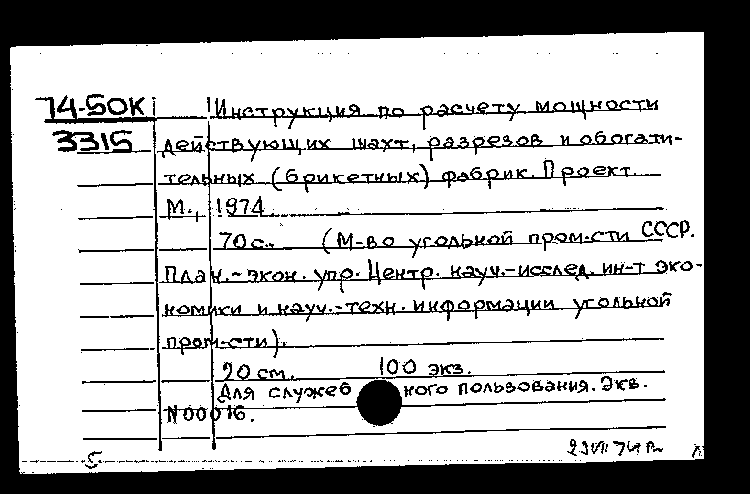 74-50К Инструкция по расчету мощности
3315 действующих шахт, разрезов и обогати-
тельных (брикетных) фабрик. Проект.
М., 1974.
70с. (М-во угольной пром-сти СССР.
План.-экон. упр. Центр. науч.-исслед. ин-т эко-
номики и науч.-техн. информации угольной
пром-сти).
20 см. 100 экз.
Для служеб ного пользования. Экв.
N00016.
5